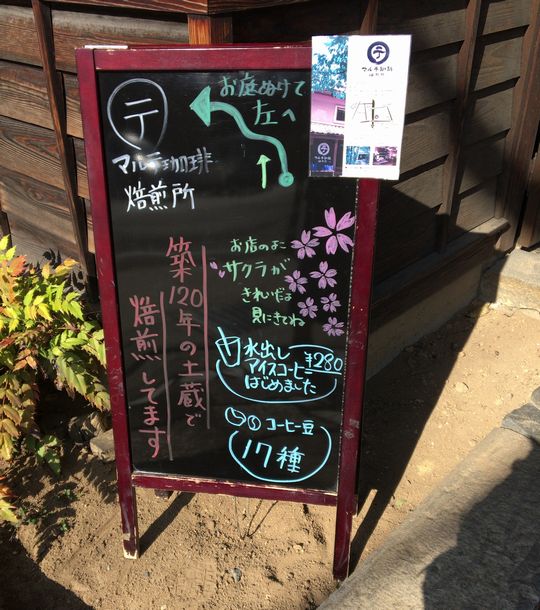 テ
マルテ珈琲
焙煎所
お庭ぬけて
左へ
築120年の土蔵で
焙煎してます
お店のよこ
サクラが
きれいだよ
見にきてね
水出し ¥280
アイスコーヒー
はじめました
コーヒー豆
17種
テ
マルテ珈琲
焙煎所